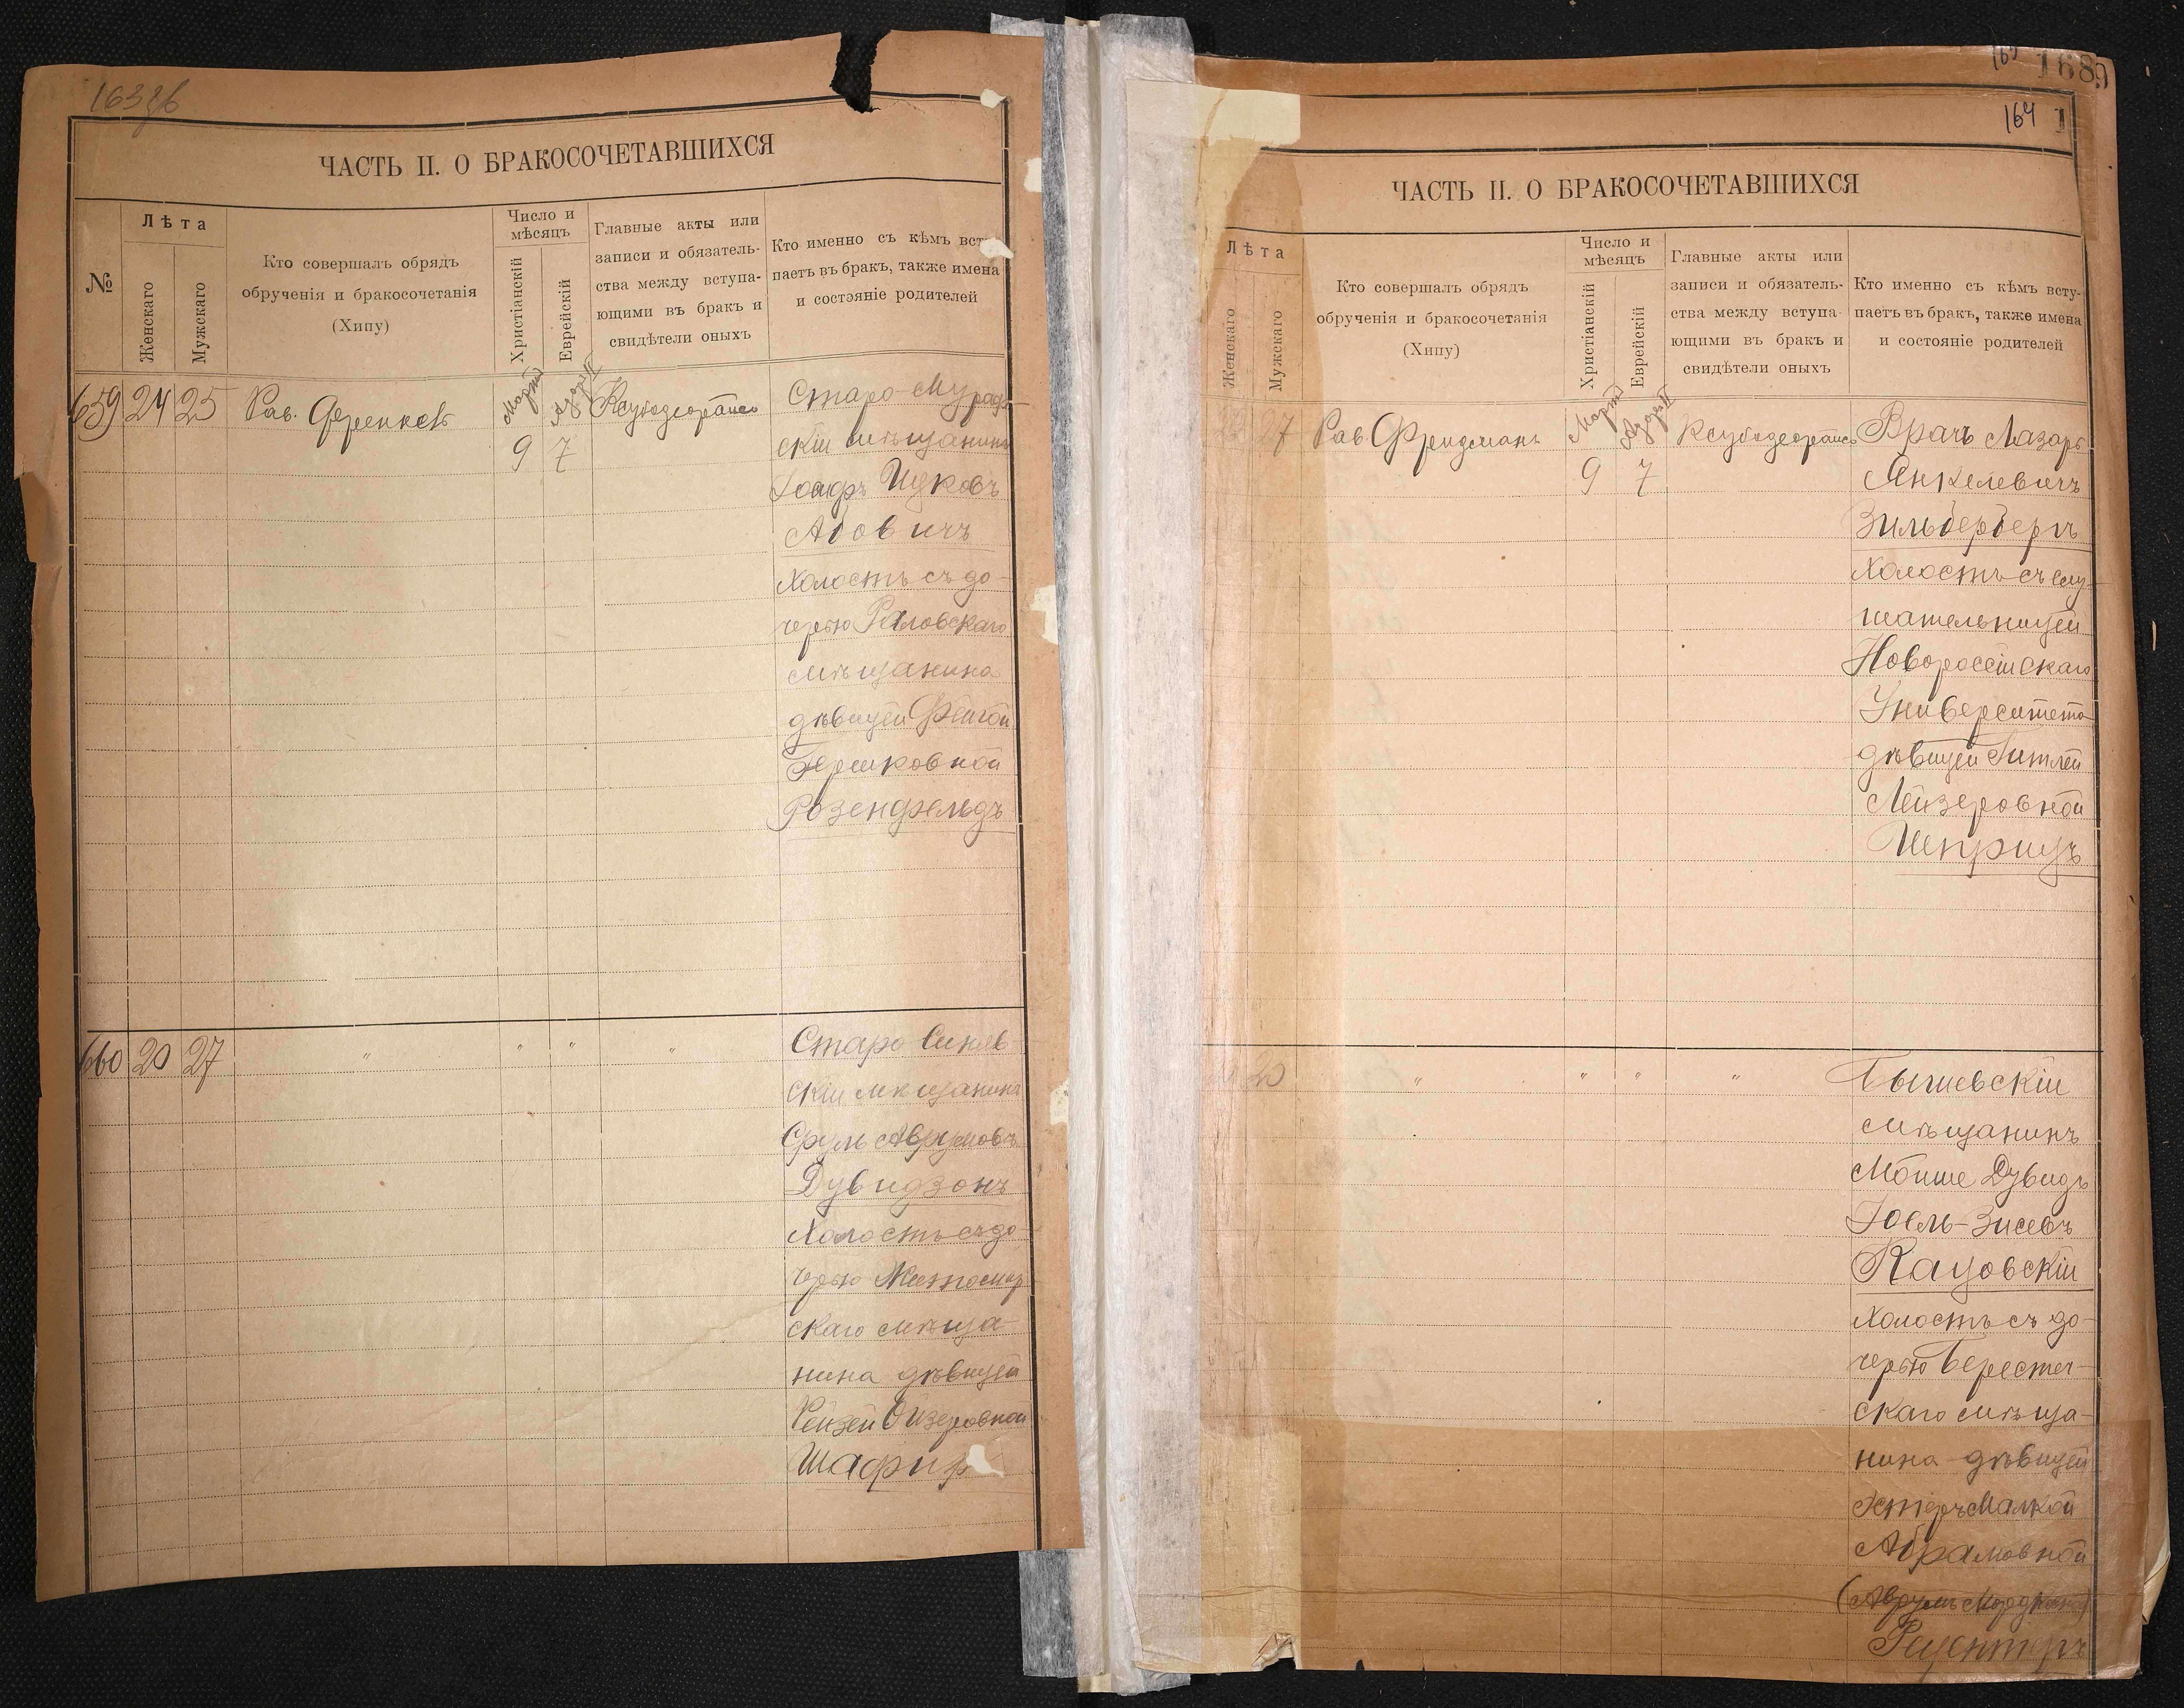 163 об
ЧАСТЬ II. О БРАКОСОЧЕТАВШИХСЯ
№
Лѣта
Женскаго
Мужскаго
Кто совершалъ обрядъ
обрученія и бракосочетанія
(Хипу)
Число и
мѣсяцъ
Христіанскій
Еврейскій
Главные акты или
записи и обязатель-
ства между вступа-
ющими въ бракъ и
свидѣтели оныхъ
Кто именно съ кѣмъ вст
паетъ въ бракъ, также имена
и состояніе родителей
659 24 25 Рав. Френкель
Мартъ
9 7
Старо-Мураф
скій мѣщанинъ
Ицковъ
Абовичъ
Холостъ съ до-
черью
мѣщанина
дѣвицей Фейгой
Гершковной
Розенфельдъ
660 20 27 " " " "
Старо Синяв
скій мѣщанинъ
Сруль Аврумовъ
Дувидзонъ
Холостъ съ до-
черью Житомир
скаго мѣща-
нина дѣвицей
Рейзей Ойзеровной
Шафир
168
164
ЧАСТЬ II. О БРАКОСОЧЕТАВШИХСЯ
Лѣта
Женскаго
Мужскаго
Кто совершалъ обрядъ
обрученія и бракосочетанія
(Хипу)
Число и
мѣсяцъ
Христіанскій
Еврейскій
Главные акты или
записи и обязатель-
ства между вступа-
ющими въ бракъ и
свидѣтели оныхъ
Кто именно съ кѣмъ всту-
паетъ въ бракъ, также имена
и состояніе родителей
27 Рав. Фридманъ
Мартъ
9 7
Врачъ Лазарь
Янкелевичъ
Зильбербергъ
Холостъ съ слу-
шательницей
Новороссійскаго
Университета
дѣвицей Гитлей
Лейзеровной
" " " "
Бышевскій
мѣщанинъ
Мойше Дувидъ
Іоель-Зисевъ
Кацовскій
Холостъ съ до-
черью Берестеч-
скаго мѣща-
нина дѣвицей
Эстеръ Малкой
Абрамовной
(Аврумъ
Рецентеръ